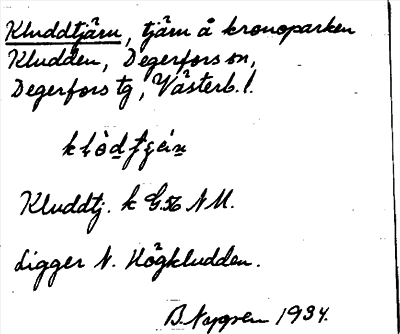 Kluddtjärn, tjärn å kronoparken
Kludden, Degerfors sn,
Degerfors tg, Västerb. l.
Kluddtj. k G. 56 NM.
Ligger N. Högkludden.
B. Nygren 1934.